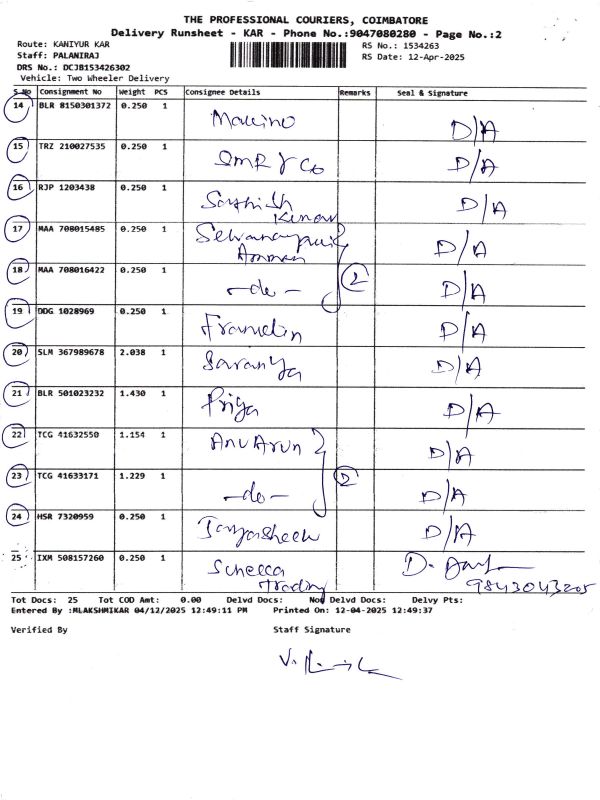 THE PROFESSIONAL COURIERS, COIMBATORE
Delivery Runsheet - KAR - Phone No.:9047080280 - Page No.:2
Route: KANIYUR KAR
RS No.: 1534263
Staff: PALANIRAJ
RS Date: 12-Apr-2025
DRS No.: DCJB153426302
Vehicle: Two Wheeler Delivery
S No Consignment No Weight PCS Consignee Details Remarks Seal & Signature
14 BLR 8150301372 0.250 1 Makino D/A
15 TRZ 210027535 0.250 1 SMR & Co D/A
16 RJP 1203438 0.250 1 Sathish D/A
Kumar
17 MAA 708015485 0.250 1 D/A
Amman
18 MAA 708016422 0.250 1 -do- 2 D/A
19 DDG 1028969 0.250 1 D/A
20 SLM 367989678 2.038 1 Saranya D/A
21 BLR 501023232 1.430 1 Priya D/A
22 TCG 41632550 1.154 1 Anu Arun D/A
23 TCG 41633171 1.229 1 -do- 2 D/A
24 HSR 7320959 0.250 1 D/A
25 IXM 508157260 0.250 1
Trading 9843043205
Tot Docs: 25 Tot COD Amt: 0.00 Delvd Docs: Not Delvd Docs: Delvy Pts:
Entered By :MLAKSHMIKAR 04/12/2025 12:49:11 PM Printed On: 12-04-2025 12:49:37
Verified By Staff Signature